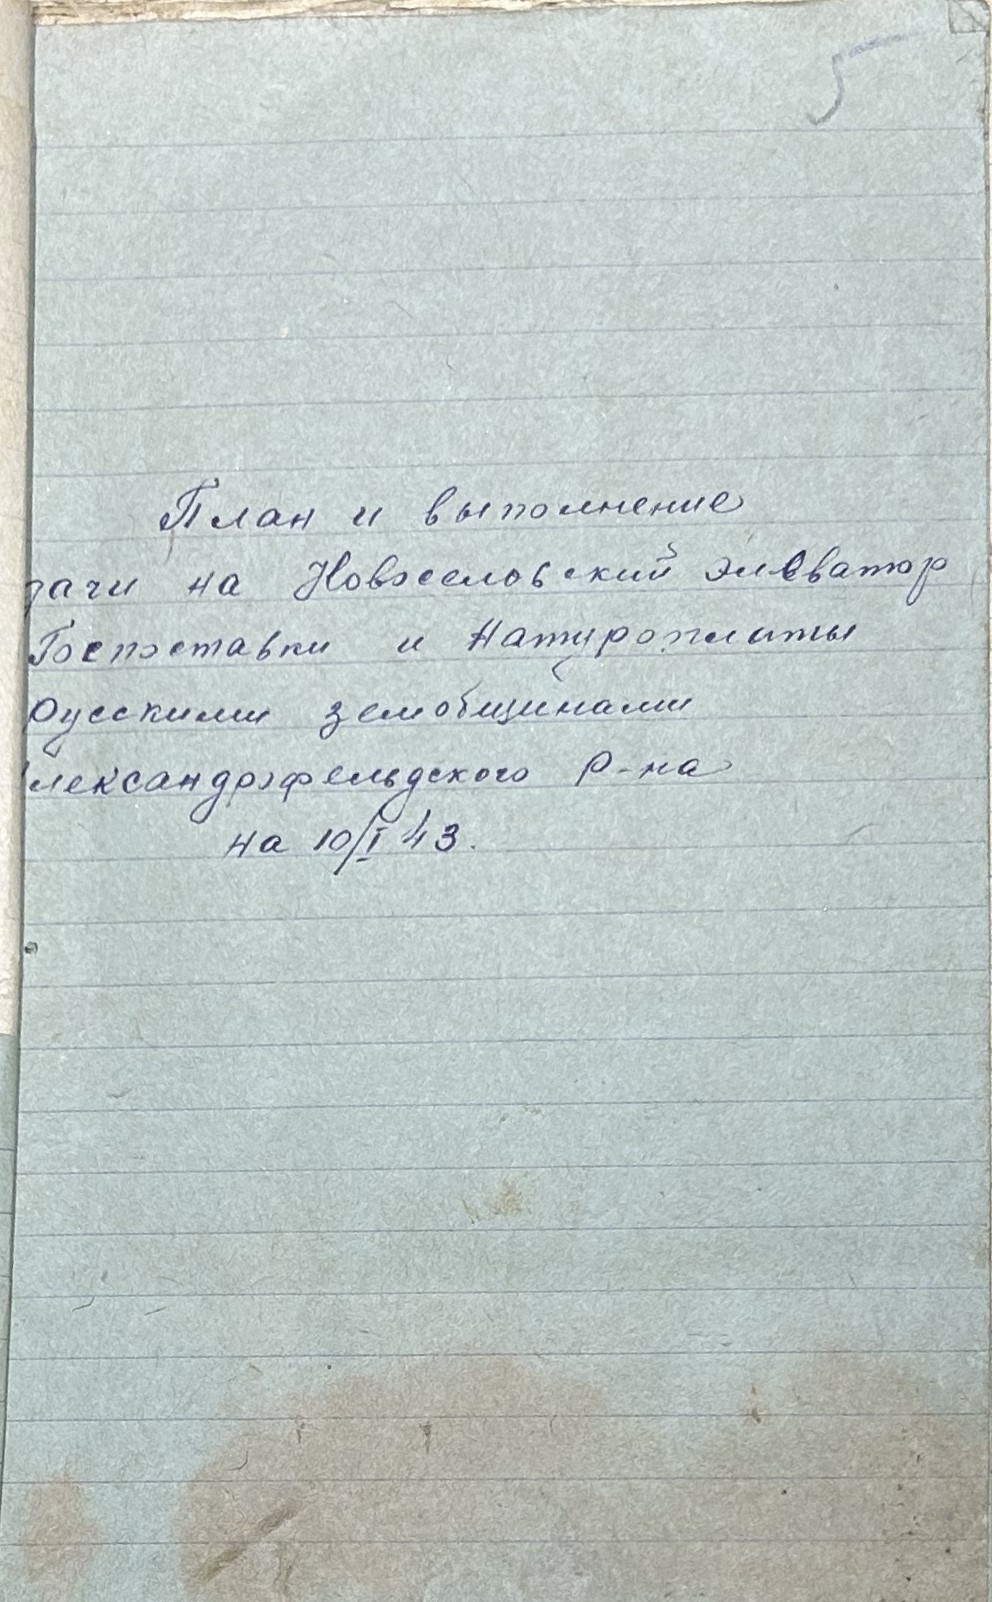 5
План и выполнение
дачи на Новоселовский элеватор
Госпоставки и Натуроплаты
Русскими земобщинами
лександрфельдского р-на
на 10/I 43.